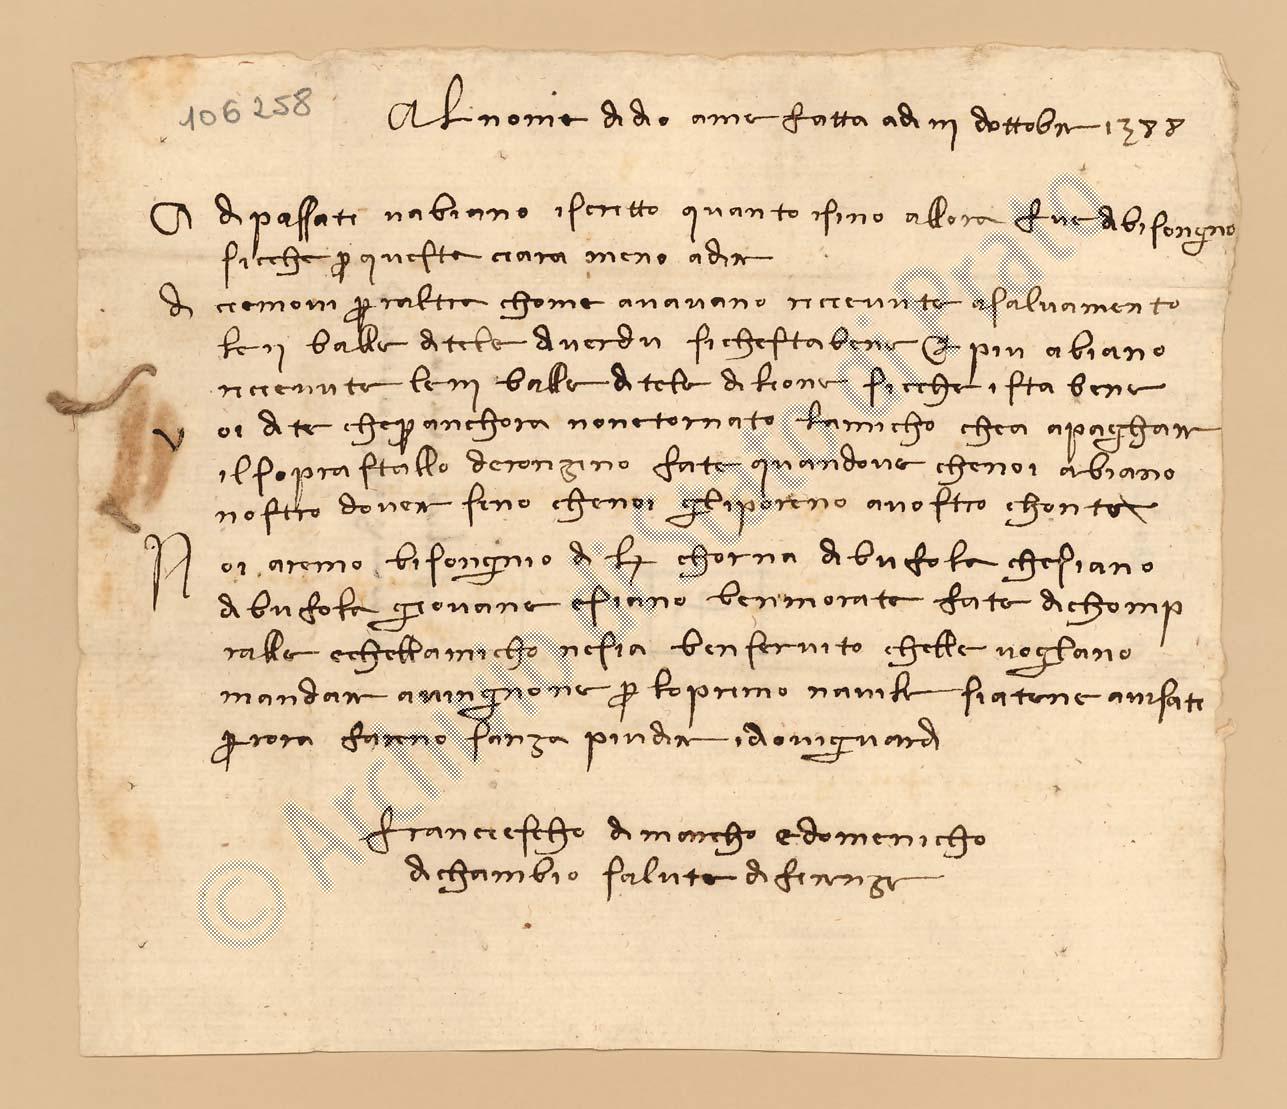 106258
Al nome di dio ame fatta adi iii dottobre 1388
A di passati vabiano iscritto quanto isino allora fue dibisongno
sicche p questa ciara meno adire
di ciemovi p raltra chome avavano ricievute asalvamento
le ii balle ditele diverdu sichestabene E piu abiano
ricievute le iii balle di tele di lione sicche ista bene
v oi dite chep anchora nonetornato lamicho chea apaghare
il soprastallo fate quandove chenoi abiano
nostro dovere seno chenoi gliporeno avostro chonto
N oi aremo bisongnio di chorna dibufole chesiano
dibufole giovane esiano benmorate fate dichomp
ralle echellamicho nesia benservito chelle vogliano
mandare avingnone p loprimo navile siatene avisati
p rora fareno sanza piudire idiovighuardi
franciescho dimarcho e domenicho
dichambio salute difirenze
© Archivio di Stato di Prato